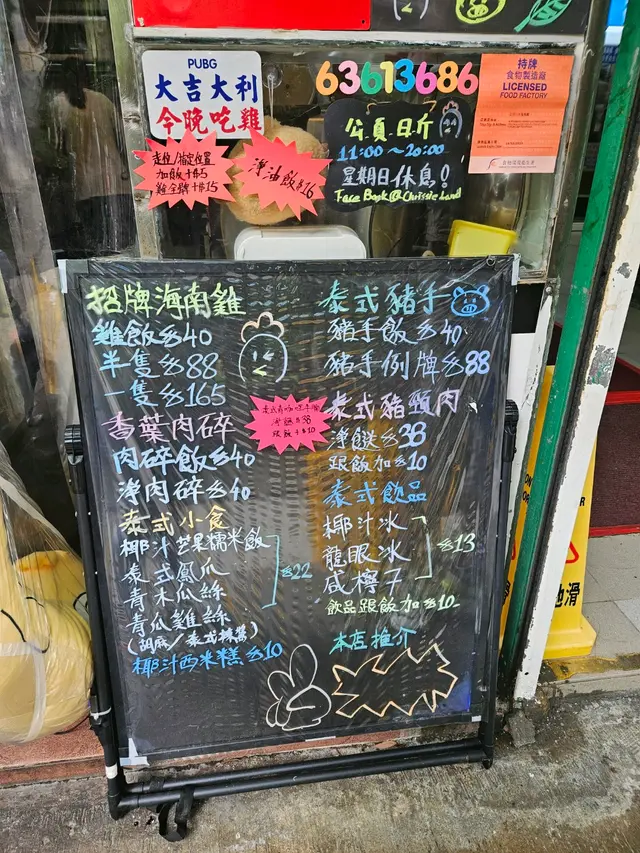 PUBG
大吉大利
今晚吃雞
走位/指定位置
加飯+$5
雞全髀+$15
淨油飯$16
63613686
11:00～20:00
星期日休息!
Face Book@Chrissie
持牌
食物製造廠
LICENSED
FOOD FACTORY
招牌海南雞
雞飯$40
半隻$88
一隻$165
香葉肉碎
肉碎飯$40
淨肉碎$40
泰式小食
椰汁芒果糯米飯
泰式鳳爪
青木瓜絲
$22
青瓜雞絲
(胡麻/泰式辣醬)
椰汁西米糕$10
$38
跟飯+$10
泰式豬手
豬手飯$40
豬手例牌$88
泰式豬頸肉
淨餸$38
跟飯加$10
泰式飲品
椰汁冰
龍眼冰
咸檸7
$13
飲品跟飯加$10
本店推介
地滑